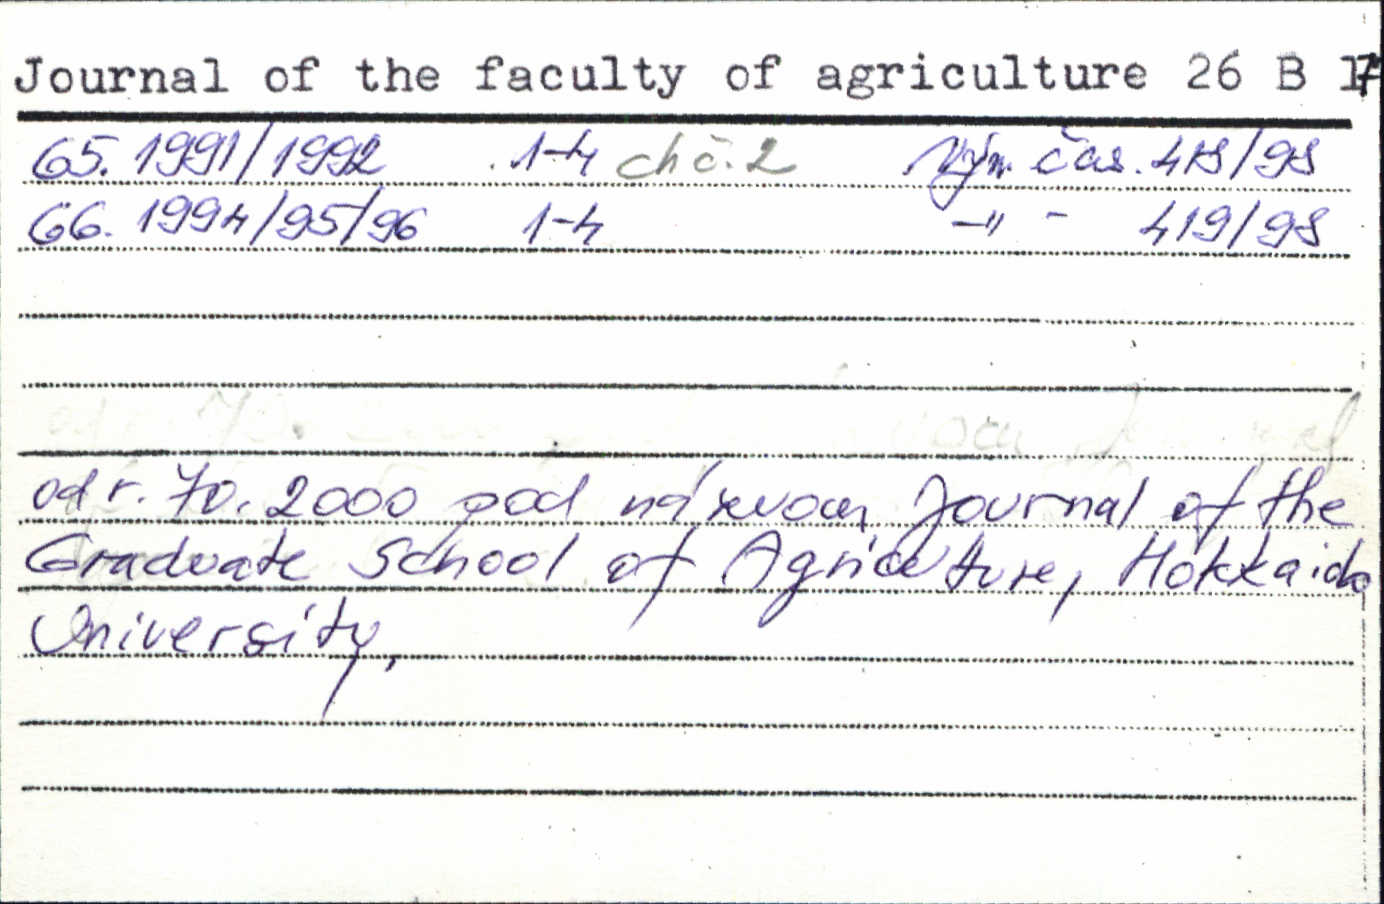 Journal of the faculty of agriculture 26 B 17
65. 1991/1992 1-4 ch č. 2 Vým. čas. 418/98
66. 1994/95/96 1-4 -"- 419/98
od r. 70. 2000 pod názvom Journal of the
Graduate School of Agriculture, Hokkaido
University,